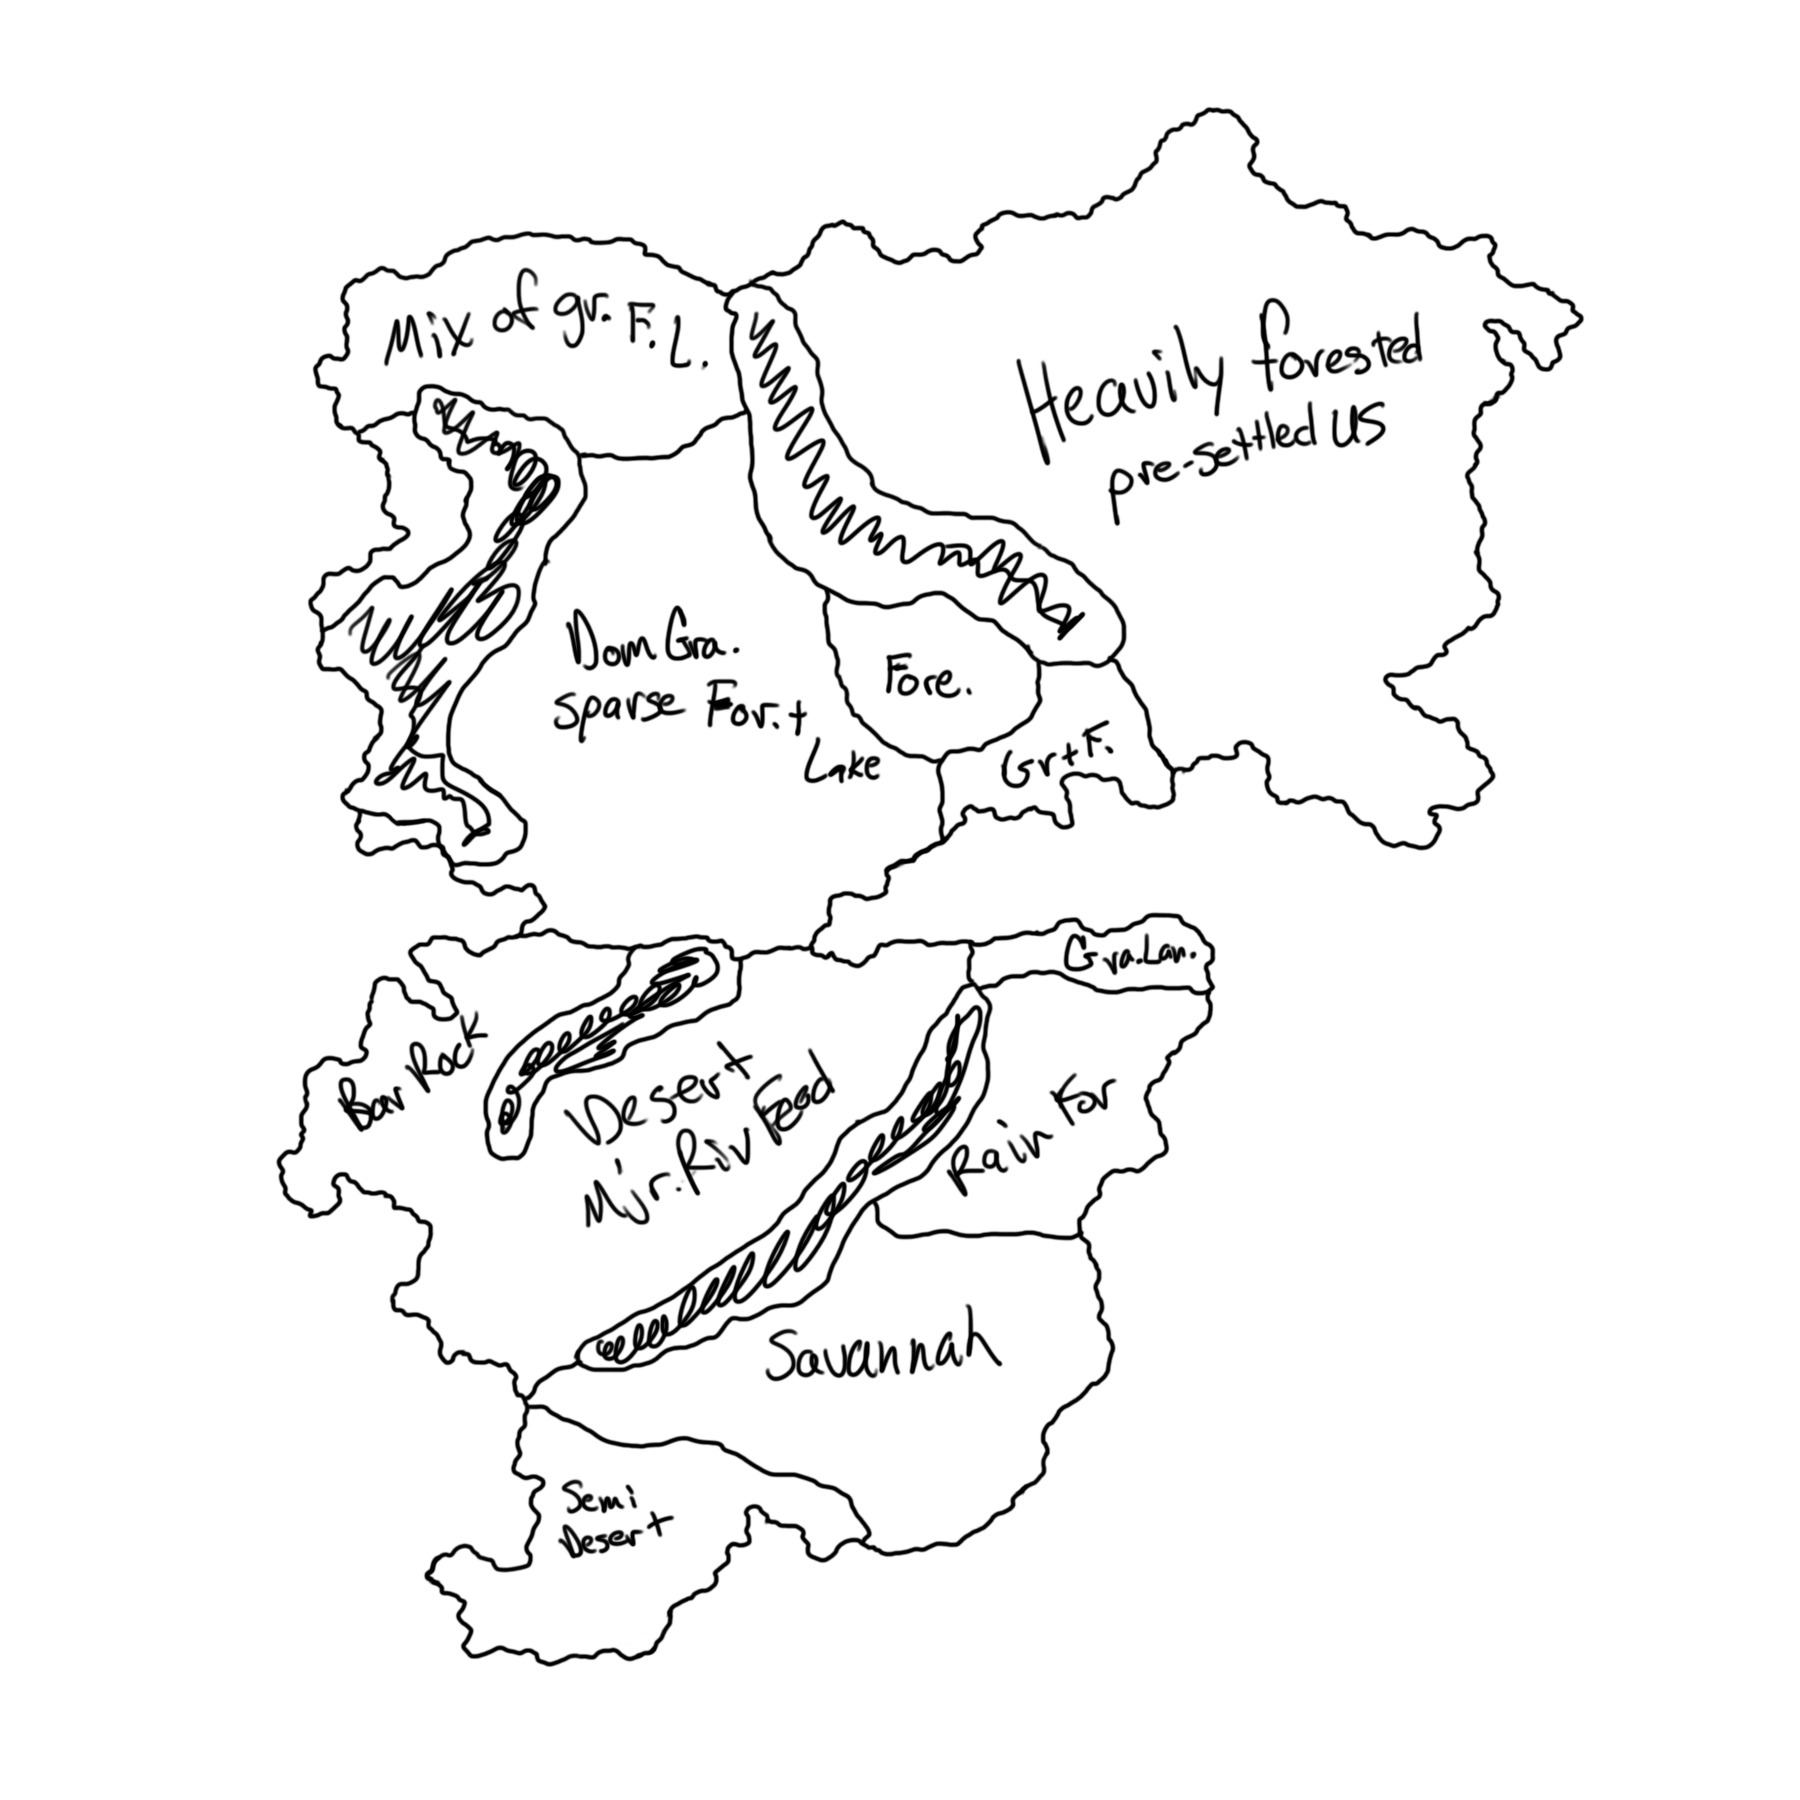 Mix of gr. F. L.
Heavily forested
pre-settled US
Dom Gra.
sparse For. +
Lake
Fore.
Gr + F.
Gra. Lan.
Bar Rock
Desert
Mjr. Riv Feod
Rain For
Savannah
Semi
Desert